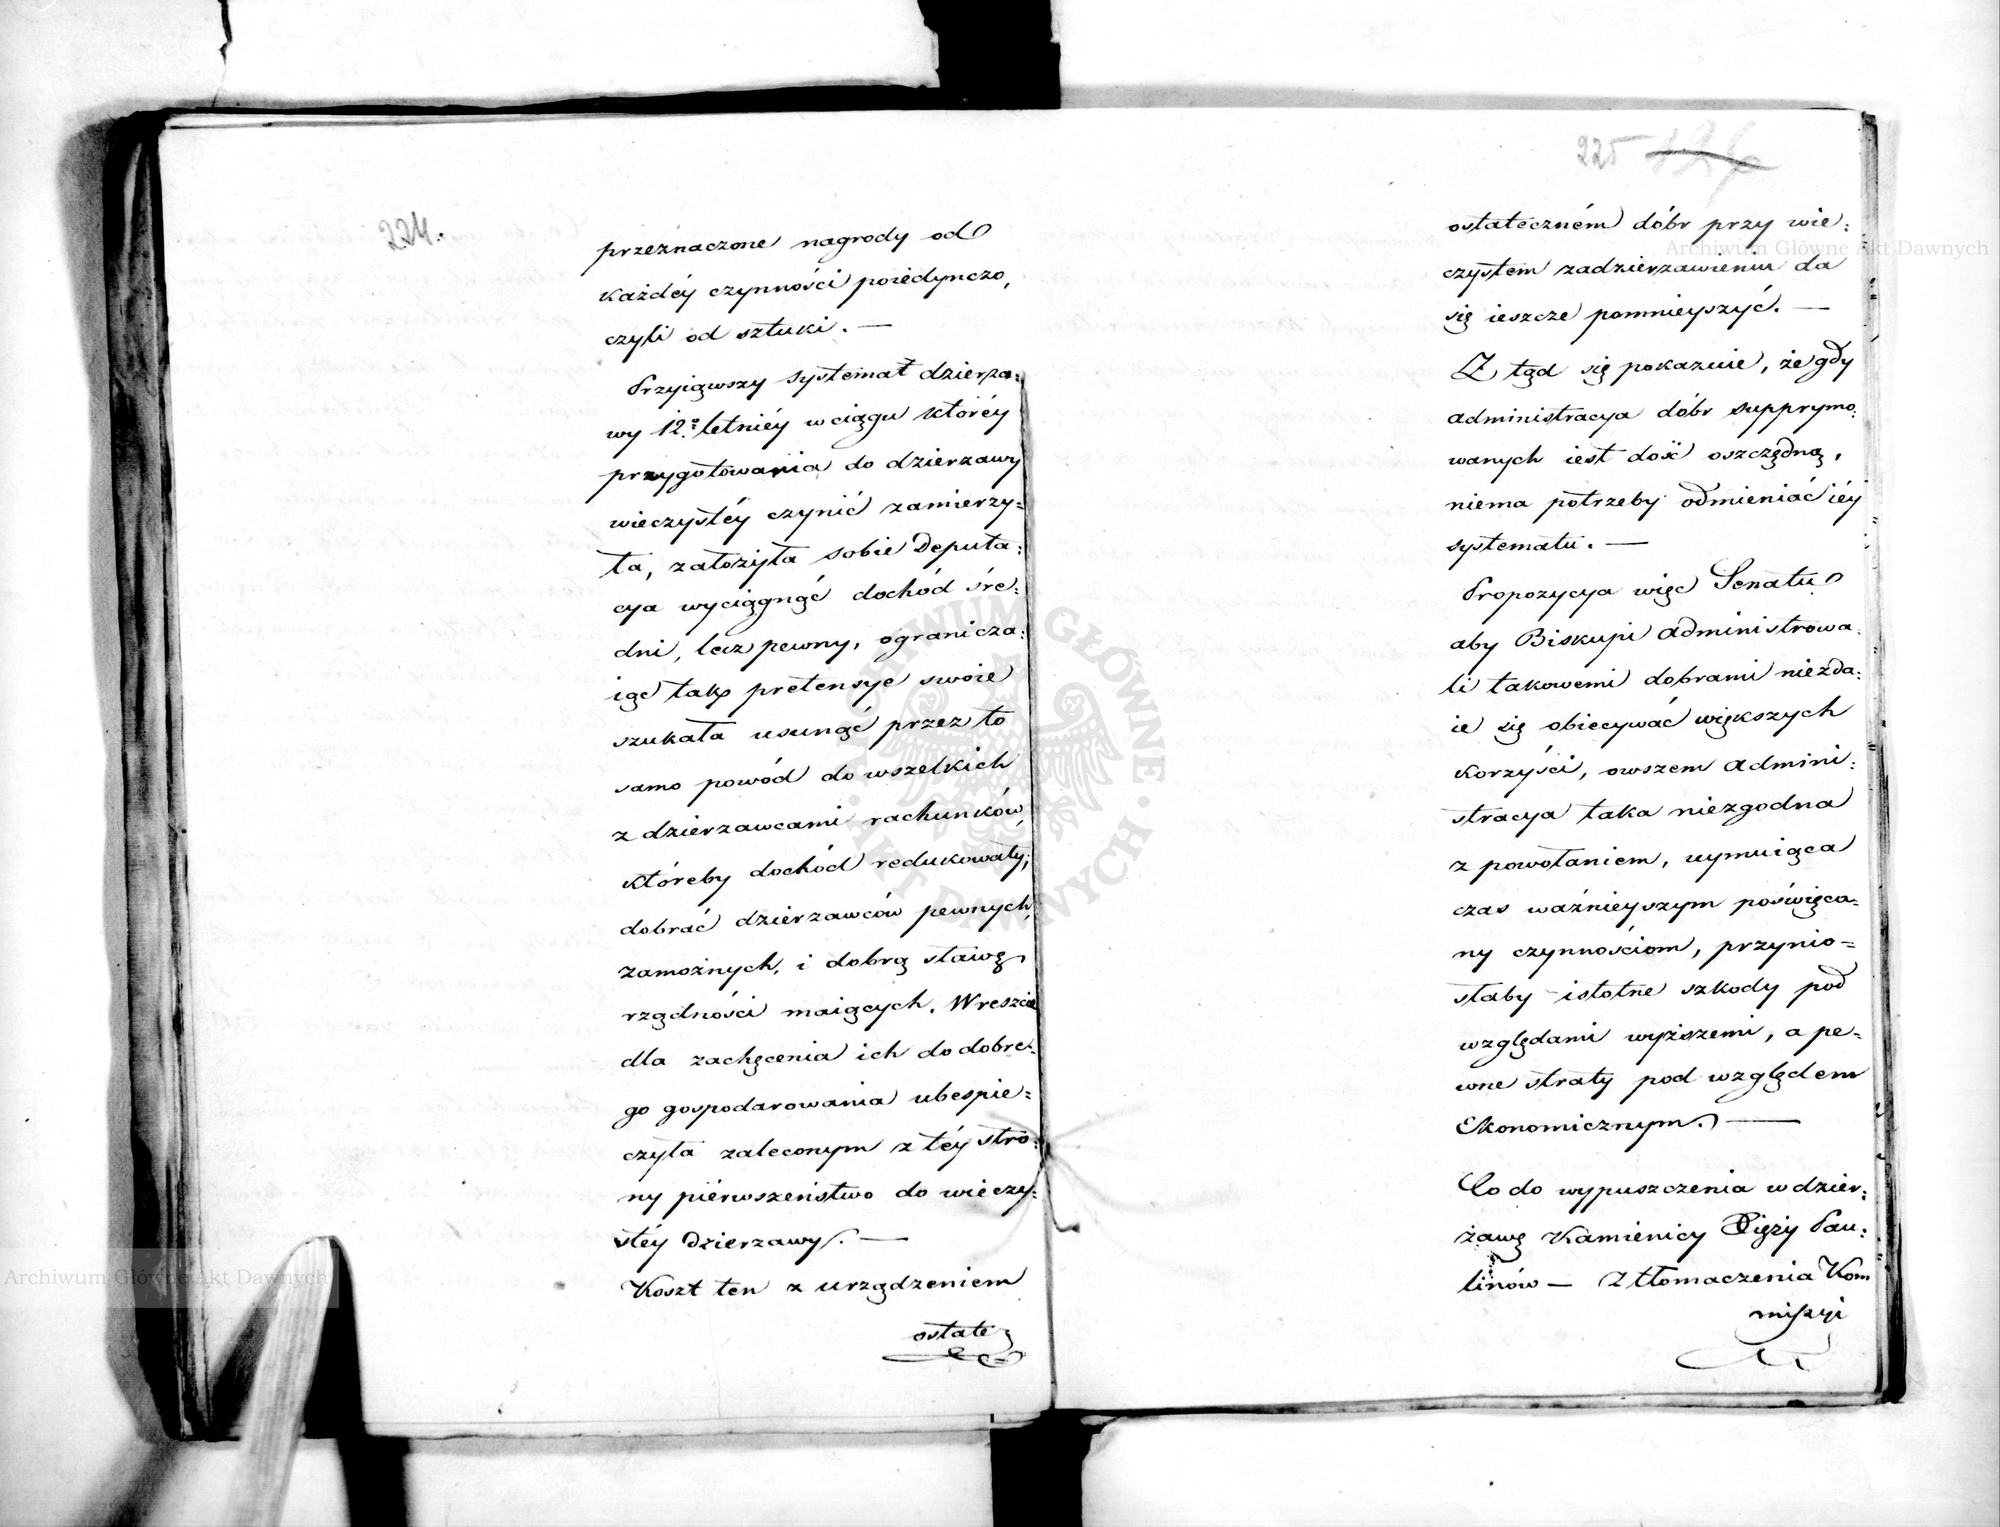 224.
przeznaczone nagrody od
każdéy czynności poiedynczo,
czyli od sztuki. —
Przyiąwszy systemat dzierża:
wy 12o letniéy w ciągu któréy
przygotowania do dzierzawy
wieczystéy czynić zamierzy=
ła, założyła sobie Deputa:
cya wyciągnąć dochód śre:
dni, lecz pewny, ogranicza:
iąc tak pretensye swoie
szukała usunąć przez to
samo powód do wszelkich
z dzierzawcami rachunków,
któreby dochód redukowały;
dobrać dzierzawców pewnych,
zamożnych, i dobrą sławę
rządności maiących. Wreszcie
dla zachęcenia ich do dobre=
go gospodarowania ubespie=
czyła zaleconym z téy stro:
ny piérwszeństwo do wieczy:
stéy Dzierzawy. —
Koszt ten z urządzeniem
ostate:
225
ostateczném dóbr przy wie:
czystem zadzierzawieniu da
się ieszcze pomnieyszyć. —
Z tąd się pokazuie, że gdy
administracya dóbr supprymo:
wanych iest dość oszczędną,
niema potrzeby odmieniać iéy
systematu. —
Propozycya więc Senatu
aby Biskupi administrowa:
li takowemi dobrami niezda:
ie się obiecywać większych
korzyści, owszem admini:
stracya taka niezgodna
z powołaniem, uymuiąca
czas ważnieyszym poświęca=
ny czynnościom, przynio=
słaby istotne szkody pod
względami wyższemi, a pe=
wne straty pod względem
Ekonomicznym. —
Co do wypuszczenia w dzier:
żawę Kamienicy Xięży Pau:
linów — Z tłomaczenia Kom
missyi
Archiwum Główne Akt Dawnych
Archiwum Główne Akt Dawnych
ARCHIWUM GŁÓWNE · AKT DAWNYCH ·